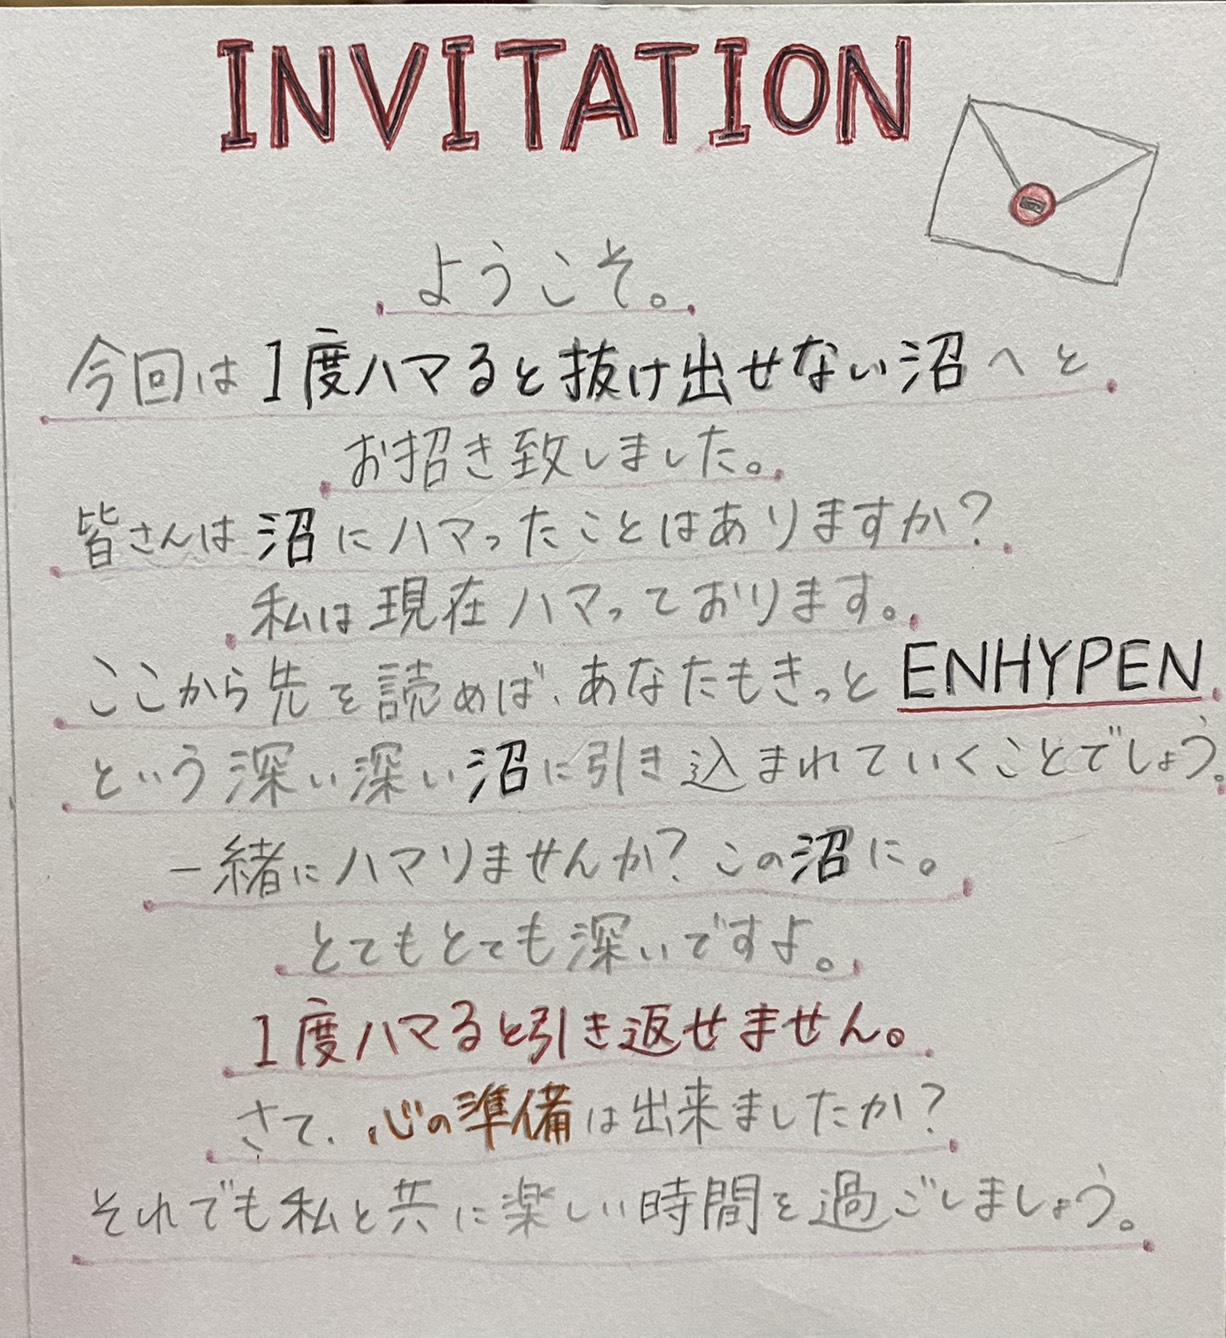 INVITATION
ようこそ。
今回は1度ハマると抜け出せない沼へと
お招き致しました。
皆さんは沼にハマったことはありますか?
私は現在ハマっております。
ここから先を読めば、あなたもきっとENHYPEN
という深い深い沼に引き込まれていくことでしょう。
一緒にハマりませんか?この沼に。
とてもとても深いですよ。
1度ハマると引き返せません。
さて、心の準備は出来ましたか?
それでも私と共に楽しい時間を過ごしましょう。